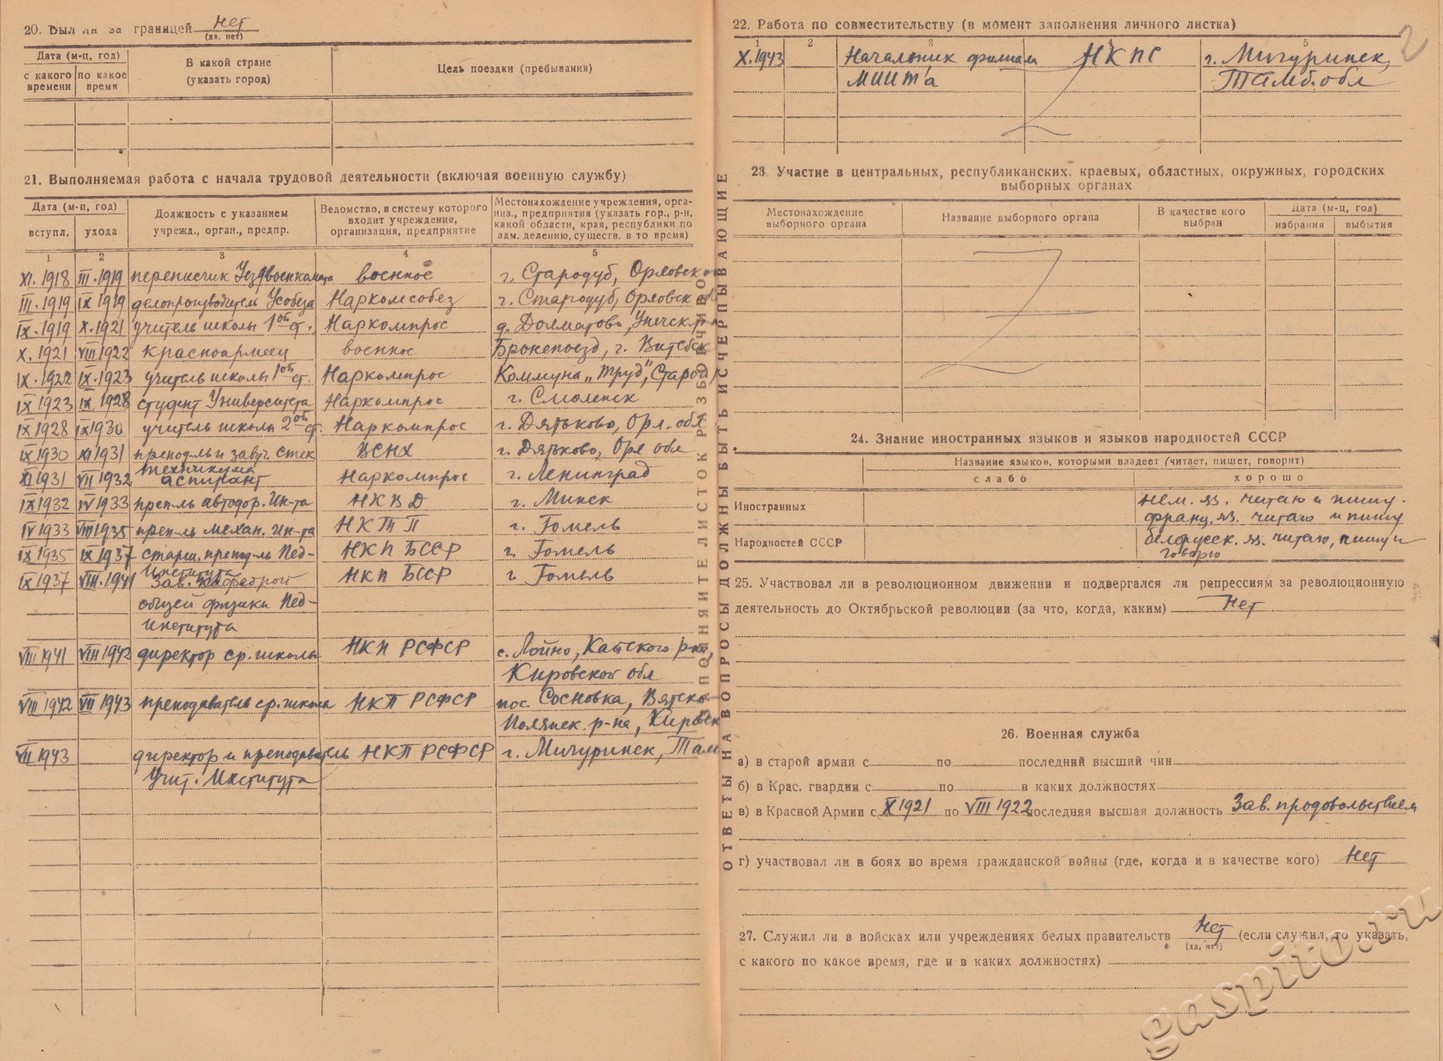 20. Был ли за границей Нет
(да, нет)
Дата (м-ц, год)
с какого времени
по какое время
В какой стране
(указать город)
Цель поездки (пребывания)
21. Выполняемая работа с начала трудовой деятельности (включая военную службу)
Дата (м-ц, год)
вступл.
ухода
Должность с указанием
учрежд., орган., предпр.
Ведомство, в систему которого
входит учреждение,
организация, предприятие
Местонахождение учреждения, орга-
низ., предприятия (указать гор., р-н,
какой области, края, республики по
адм. делению, существ. в то время)
1 2 3 4 5
XI.1918 III.1919 переписчик Уездвоенкомата военное г. Стародуб, Орловск
III.1919 IX 1919 делопроизводителем Усобеза Наркомсобез г. Стародуб, Орловск
IX.1919 X.1921 учитель школы 1ой ст. Наркомпрос д. Долматово, Унечск. р-н
X.1921 VIII 1922 красноармеец военное Бронепоезд, г. Витебск
IX.1922 IX.1923 учитель школы 1ой ст. Наркомпрос Коммуна „Труд", Старод
IX 1923 IX 1928 студент Университета Наркомпрос г. Смоленск
IX 1928 IX 1930 учитель школы 2ой ст. Наркомпрос г. Дятьково, Орл. обл
IX 1930 XI 1931 ВСНХ г. Дятьково, Орл обл
техникума
XI 1931 VII 1932 аспирант Наркомпрос г. Ленинград
IX 1932 IV 1933 преп-ль автодор. Ин-та НКВД г. Минск
IV 1933 VIII 1935 преп-ль механ. Ин-та НКТП г. Гомель
IX 1935 IX 1937 старш. препод-ль Пед- НКП БССР г. Гомель
Института
IX 1937 VIII.1941 Зав. кафедрой НКП БССР г Гомель
общей физики Пед-
Института
VIII 1941 VIII 1942 директор ср. школы НКП РСФСР с. Лойно, Кайского р-на,
Кировской обл
VIII 1942 VII 1943 преподаватель ср. школы НКП РСФСР пос. Сосновка, Вятско
Полянск. р-на, Кировск
VII 1943 директор и преподаватель НКП РСФСР г. Мичуринск, Там
Учит. Института
ЗАПОЛНЯЙТЕ ЛИСТОК РАЗБОРЧИВО
ОТВЕТЫ НА ВОПРОСЫ ДОЛЖНЫ БЫТЬ ИСЧЕРПЫВАЮЩИЕ
2
22. Работа по совместительству (в момент заполнения личного листка)
1 2 3 4 5
X.1943 Начальник филиала НКПС г. Мичуринск,
МИИТ'а Тамб. обл
23. Участие в центральных, республиканских, краевых, областных, окружных, городских
выборных органах
Местонахождение
выборного органа
Название выборного органа
В качестве кого
выбран
Дата (м-ц, год)
избрания
выбытия
24. Знание иностранных языков и языков народностей СССР
Название языков, которыми владеет (читает, пишет, говорит)
слабо
хорошо
Иностранных
нем. яз. читаю и пишу.
франц. яз. читаю и пишу
Народностей СССР
белорусск. яз. читаю, пишу и
говорю
25. Участвовал ли в революционном движении и подвергался ли репрессиям за революционную
деятельность до Октябрьской революции (за что, когда, каким) Нет
26. Военная служба
а) в старой армии с по последний высший чин
б) в Крас. гвардии с по в каких должностях
в) в Красной Армии с X 1921 по VIII 1922 последняя высшая должность Зав. продовольствием
г) участвовал ли в боях во время гражданской войны (где, когда и в качестве кого) Нет
27. Служил ли в войсках или учреждениях белых правительств Нет (если служил, то указать,
(да, нет)
с какого по какое время, где и в каких должностях)
gaspito.ru